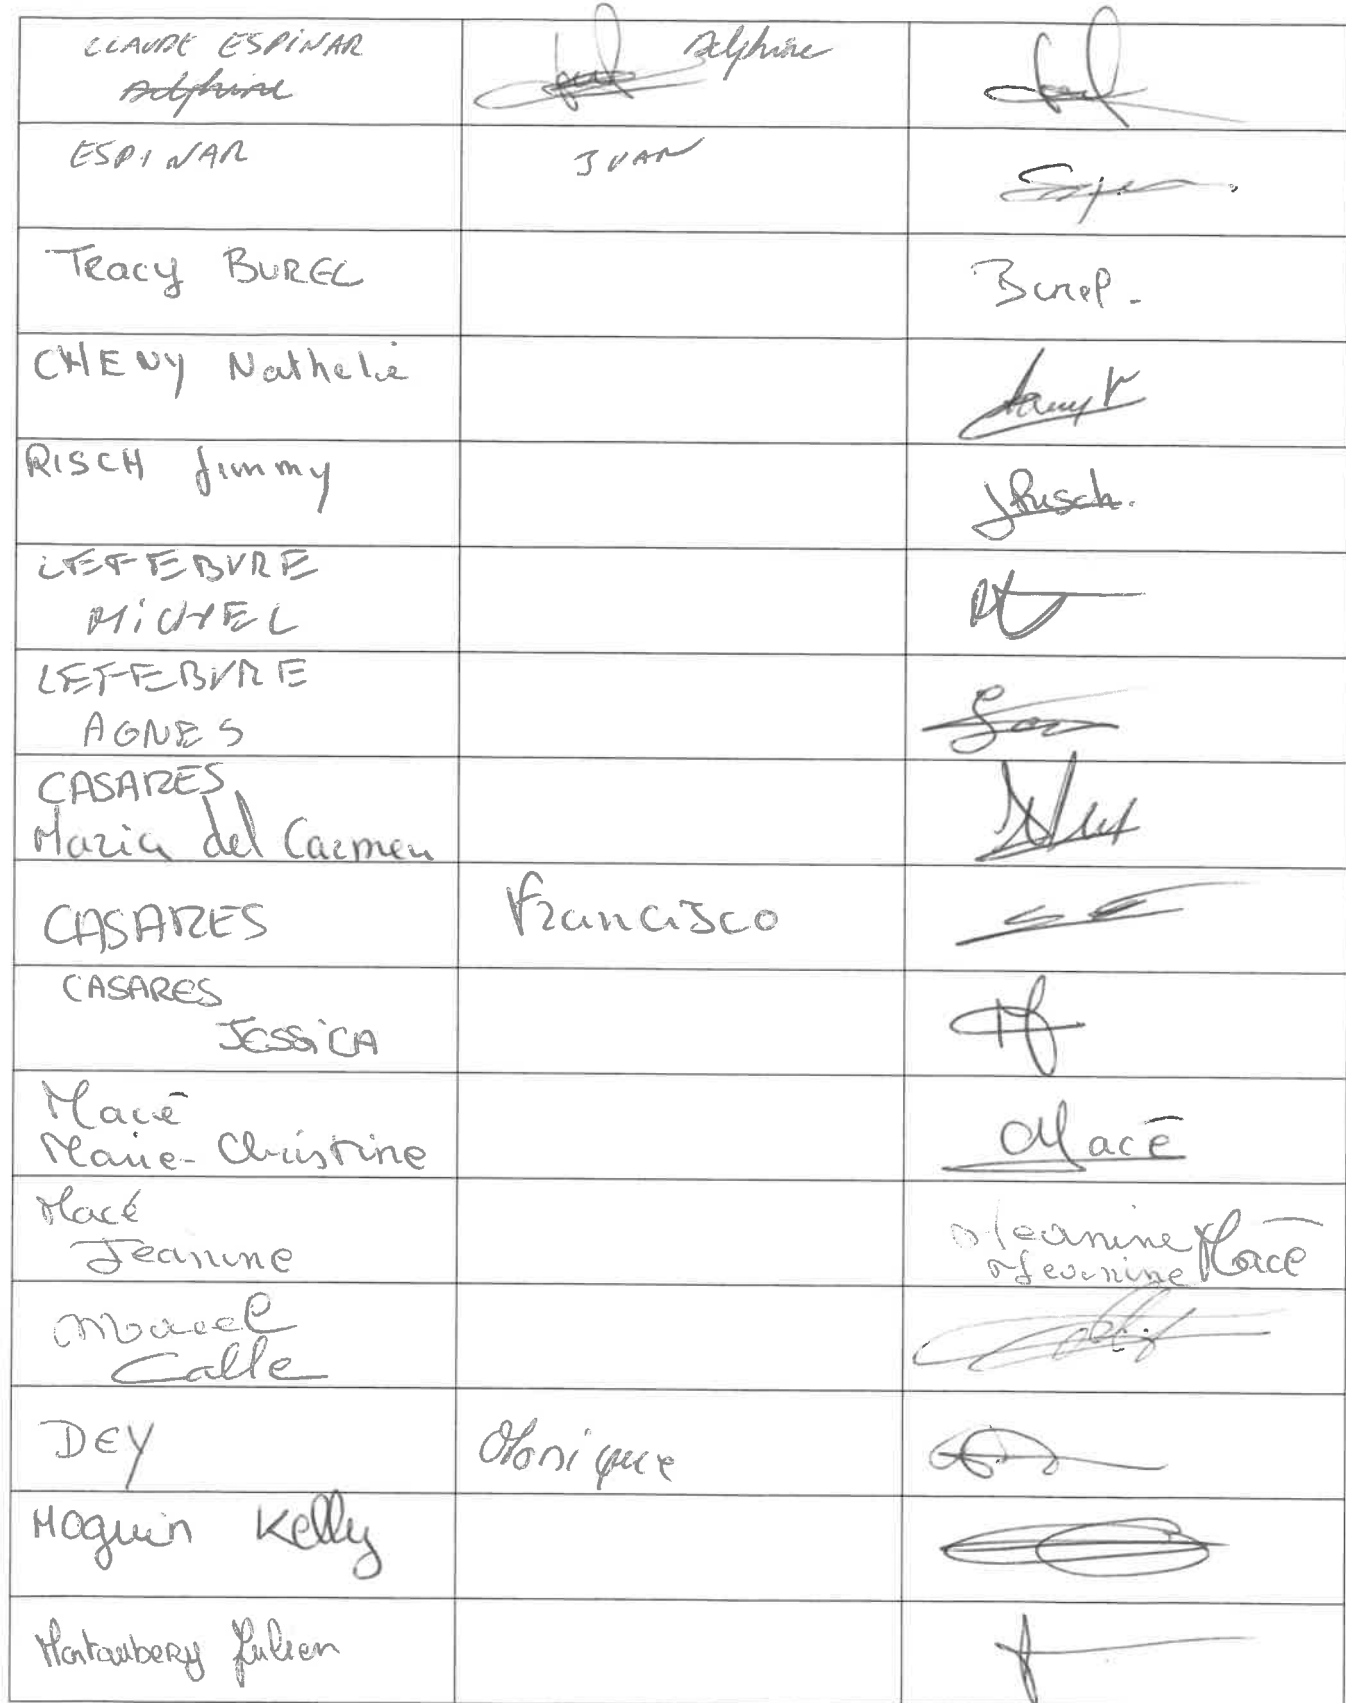 CLAUDE ESPINAR Delphine
Delphine
ESPINAR JUAN
Tracy BUREL Burel.
CHENY Nathalie
RISCH Jimmy JRisch.
LEFEBVRE
MICHEL
LEFEBVRE
AGNES
CASARES
Maria del Carmen
CASARES Francisco
CASARES
JESSICA
Macé
Marie-Christine Macé
Macé
Jeanine Jeanine Macé
Jeanine
Marcel
Calle
DEY Monique
Moguin Kelly
Montaubery Julien